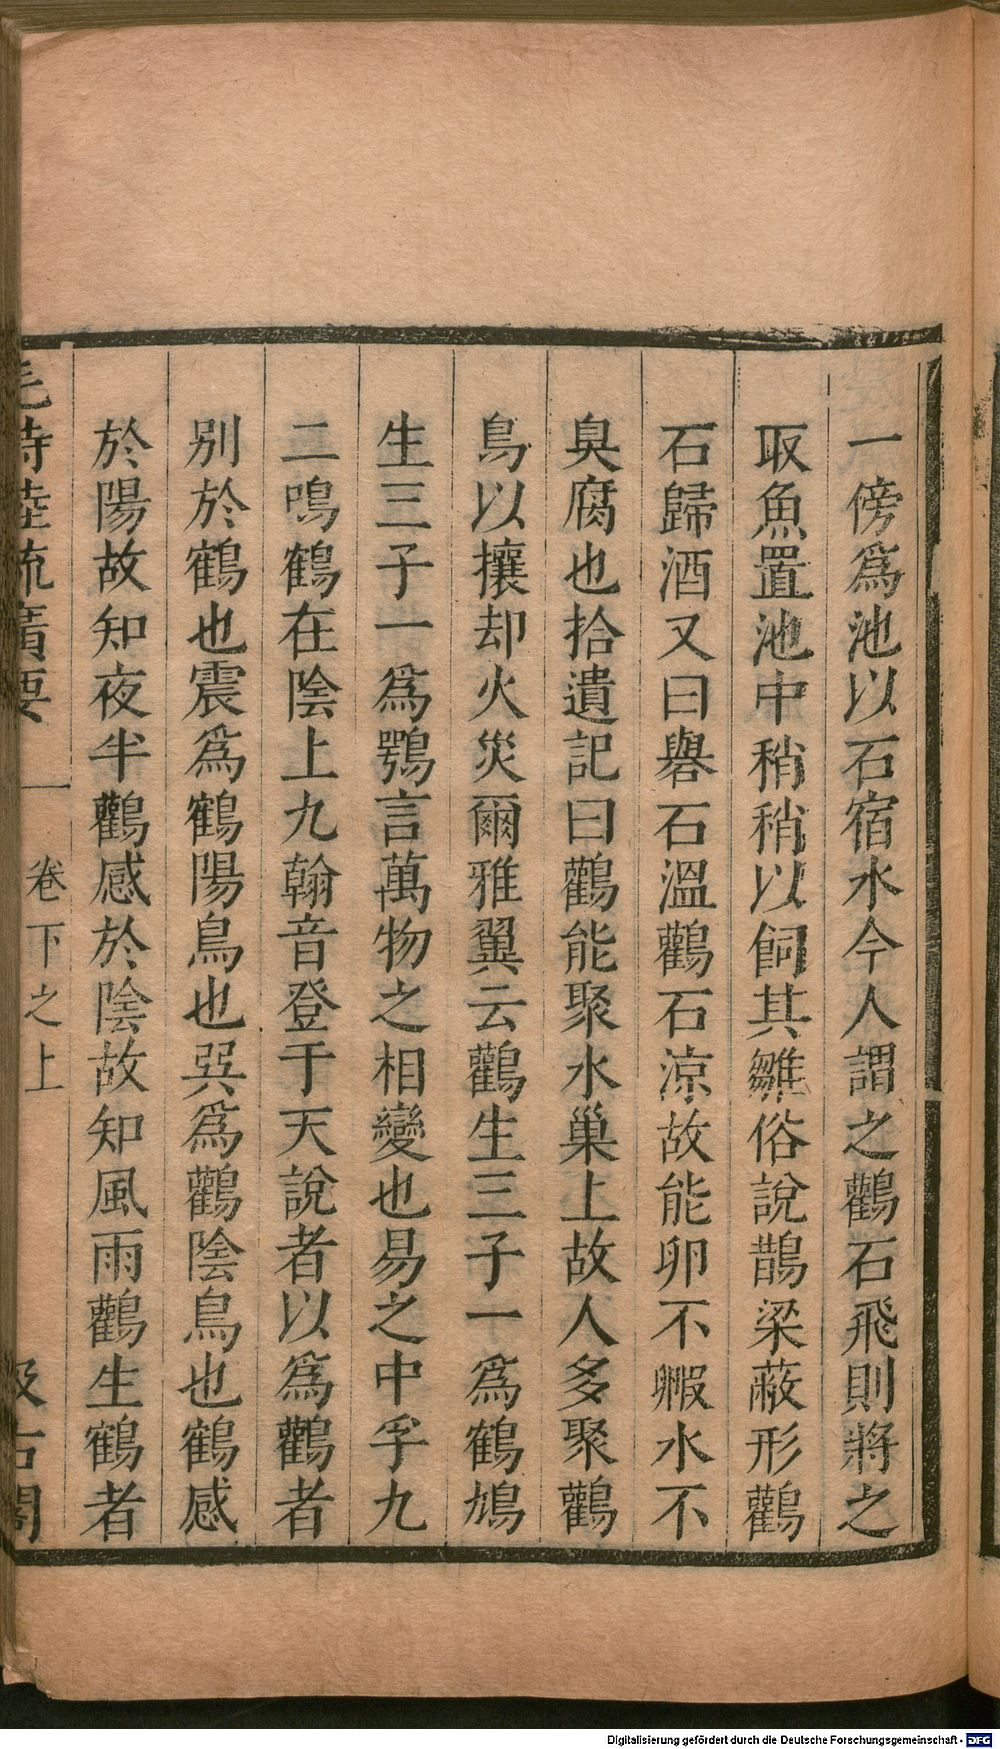 一傍爲池以石宿水今人謂之鸛石飛則將之
取魚置池中稍稍以飼其雛俗說鵲梁蔽形鸛
石歸酒又曰礜石溫鸛石涼故能卵不毈水不
臭腐也拾遺記曰鸛能聚水巢上故人多聚鸛
鳥以攘却火災爾雅翼云鸛生三子一爲鶴鳩
生三子一爲鶚言萬物之相變也易之中孚九
二鳴鶴在陰上九翰音登于天說者以爲鸛者
别於鶴也震爲鶴陽鳥也巽爲鸛陰鳥也鶴感
於陽故知夜半鸛感於陰故知風雨鸛生鶴者
毛詩陸疏廣要 卷下之上 汲古閣
Digitalisierung gefördert durch die Deutsche Forschungsgemeinschaft - DFG